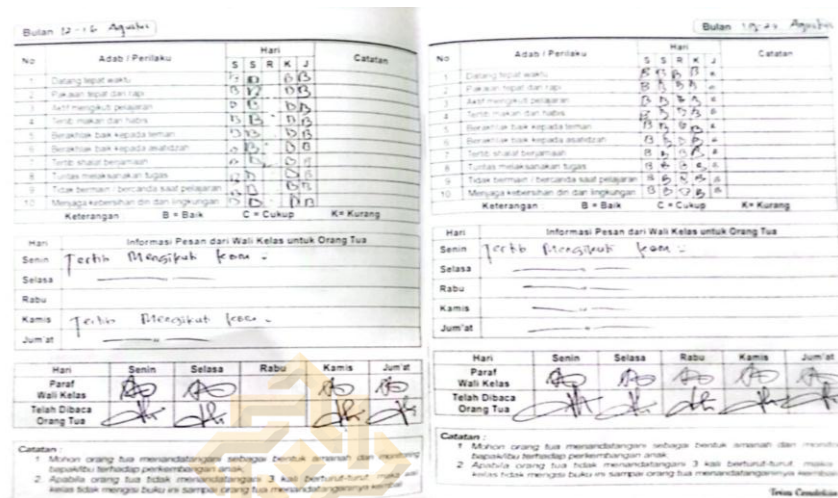 Bulan 12-16 Agustus
No Adab / Perilaku Hari Catatan
S S R K J
1 Datang tepat waktu B B B B
2 Pakaian tepat dan rapi B B B B
3 Aktif mengikuti pelajaran B B B B
4 Tertib makan dan habis B B B B
5 Berakhlak baik kepada teman B B B B
6 Berakhlak baik kepada asahdzah B B B
7 Tertib shalat berjamaah B B
8 Tuntas melaksanakan tugas B B
9 Tidak bermain / bercanda saat pelajaran B B B
10 Menjaga kebersihan diri dan lingkungan B B B
Keterangan B = Baik C = Cukup K= Kurang
Hari Informasi Pesan dari Wali Kelas untuk Orang Tua
Senin Tertib Mengikuti
Selasa
Rabu
Kamis Tertib Mengikuti
Jum'at
Hari Senin Selasa Rabu Kamis Jum'at
Paraf
Wali Kelas
Telah Dibaca
Orang Tua
Catatan :
1 Mohon orang tua menandatangani sebagai bentuk amanah dan monitoring
bapak/ibu terhadap perkembangan anak.
2 Apabila orang tua tidak menandatangani 3 kali berturut-turut maka wali
kelas tidak mengisi buku ini sampai orang tua menandatanganinya kembali
Bulan Agustus
No Adab / Perilaku Hari Catatan
S S R K J
1 Datang tepat waktu B B B B B
2 Pakaian tepat dan rapi B B B B B
3 Aktif mengikuti pelajaran B B B B B
4 Tertib makan dan habis B B B B B
5 Berakhlak baik kepada teman B B B B B
6 Berakhlak baik kepada asahdzah B B B B B
7 Tertib shalat berjamaah B B B B B
8 Tuntas melaksanakan tugas B B B B B
9 Tidak bermain / bercanda saat pelajaran B B B B B
10 Menjaga kebersihan diri dan lingkungan B B B B B
Keterangan B = Baik C = Cukup K= Kurang
Hari Informasi Pesan dari Wali Kelas untuk Orang Tua
Senin Tertib Mengikuti
Selasa
Rabu
Kamis
Jum'at
Hari Senin Selasa Rabu Kamis Jum'at
Paraf
Wali Kelas
Telah Dibaca
Orang Tua
Catatan :
1 Mohon orang tua menandatangani sebagai bentuk amanah dan
bapak/ibu terhadap perkembangan anak.
2 Apabila orang tua tidak menandatangani 3 kali berturut-turut, maka
kelas tidak mengisi buku ini sampai orang tua menandatanganinya